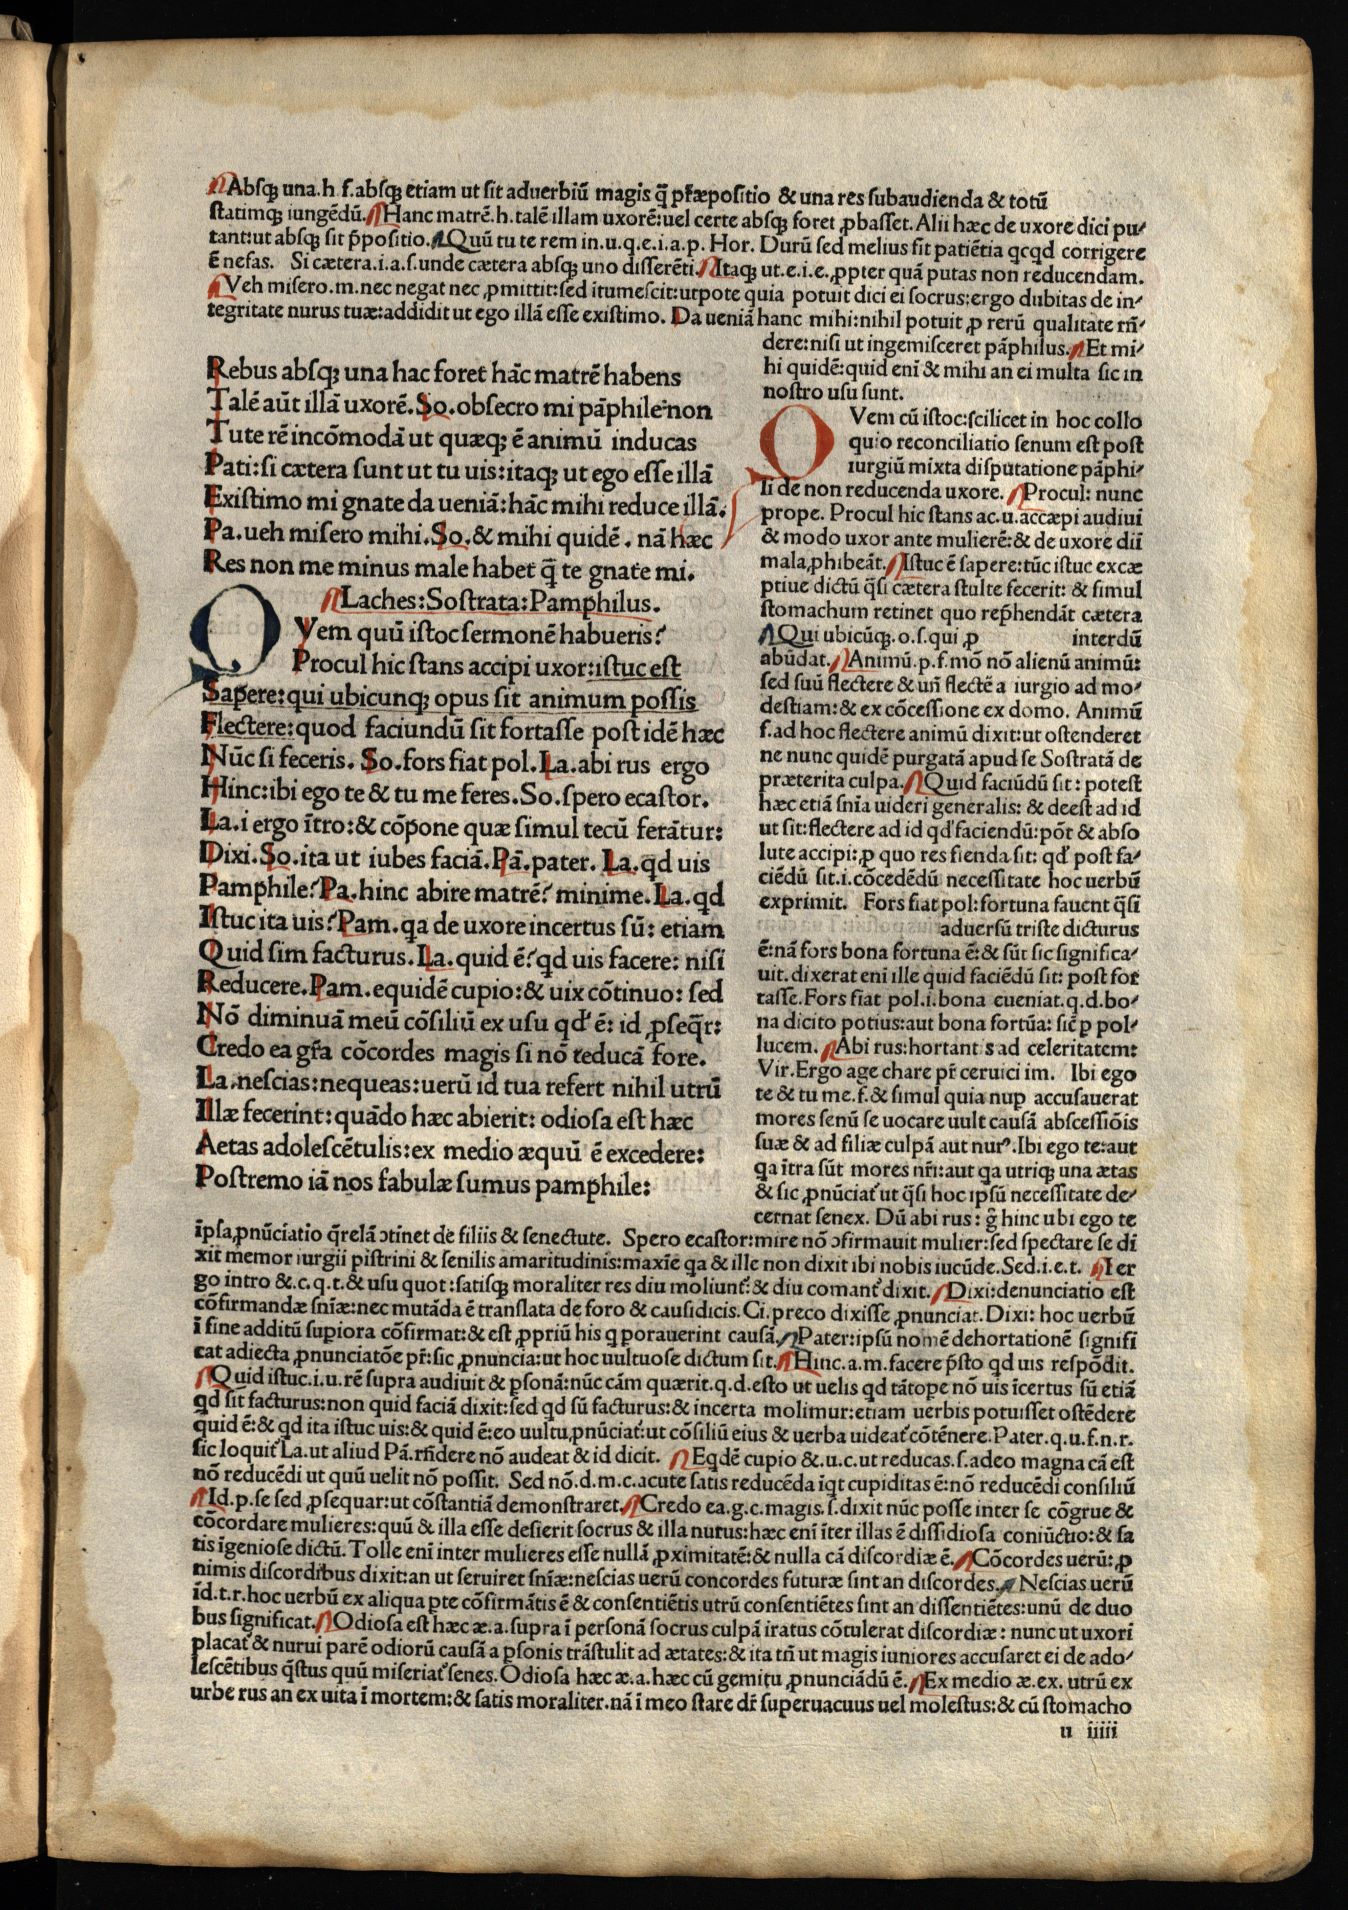 Absq; una.h f.absq; etiam ut sit aduerbiū magis q̄ pr̄æpositio & una res subaudienda & totū
statimq; iungēdū. Hanc matrē.h.talē illam uxorē:uel certe absq; foret ꝓbasset. Alii hæc de uxore dici pu-
tant:ut absq; sit p̄positio. Quū tu te rem in.u.q.e.i.a.p. Hor. Durū sed melius fit patiētia qcqd corrigere
ē nefas. Si cætera.i.a.s.unde cætera absq; uno disserēti. Itaq; ut.e.i.e.ꝓpter quā putas non reducendam.
Veh misero.m.nec negat nec ꝓmittit:sed ītumescit:utpote quia potuit dici ei socrus:ergo dubitas de in-
tegritate nurus tuæ:addidit ut ego illā esse existimo. Da ueniā hanc mihi:nihil potuit ꝓ rerū qualitate rn̄-
dere:nisi ut ingemisceret pāphilus. Et mi-
hi quidē:quid enī & mihi an ei multa sic in
nostro usu sunt.
Rebus absq; una hac foret hāc matrē habens
Talē aūt illā uxorē. So.obsecro mi pāphile:non
Tute rē incōmodā ut quæq; ē animū inducas
Pati:si cætera sunt ut tu uis:itaq; ut ego esse illā
Existimo mi gnate da ueniā:hāc mihi reduce illā.
Pa.ueh misero mihi.So.& mihi quidē. nā hæc
Res non me minus male habet q̄ te gnate mi.
Laches:Sostrata:Pamphilus.
QVem quū istoc sermonē habueris?
Procul hic stans accipi uxor:istuc est
Sapere:qui ubicunq; opus sit animum possis
Flectere:quod faciundū sit fortasse post idē hæc
Nūc si feceris. So.fors fiat pol.La.abi rus ergo
Hinc:ibi ego te & tu me feres.So.spero ecastor.
La.i ergo ītro:& cōpone quæ simul tecū ferātur:
Dixi.So.ita ut iubes faciā.Pā.pater. La.qd uis
Pamphile?Pa.hinc abire matrē? minime.La.qd
Istuc ita uis?Pam.qa de uxore incertus sū: etiam
Quid sim facturus.La.quid ē?qd uis facere: nisi
Reducere.Pam.equidē cupio:& uix cōtinuo: sed
Nō diminuā meū cōsiliū ex usu qd' ē: id ꝓseq̄r:
Credo ea gr̄a cōcordes magis si nō reducā fore.
La.nescias:nequeas:uerū id tua refert nihil utrū
Illæ fecerint:quādo hæc abierit: odiosa est hæc
Aetas adolescētulis:ex medio æquū ē excedere:
Postremo iā nos fabulæ sumus pamphile:
QVem cū istoc:scilicet in hoc collo
quio reconciliatio senum est post
iurgiū mixta disputatione pāphi-
li de non reducenda uxore. Procul: nunc
prope. Procul hic stans ac.u.accæpi audiui
& modo uxor ante mulierē:& de uxore dii
mala ꝓhibeāt. Istuc ē sapere:tūc istuc excæ
ptiue dictū q̄si cætera stulte fecerit: & simul
stomachum retinet quo rep̄hendāt cætera
Qui ubicūq;.o.s.qui ꝓ interdū
abūdat. Animū.p.f.mō nō alienū animū:
sed suū flectere & un̄ flectē a iurgio ad mo-
destiam:& ex cōcessione ex domo. Animū
f.ad hoc flectere animū dixit:ut ostenderet
ne nunc quidē purgatā apud se Sostratā de
præterita culpa. Quid faciūdū sit: potest
hæc etiā sn̄ia uideri generalis: & deest ad id
ut sit:flectere ad id qd' faciendū:pōt & abso
lute accipi:ꝓ quo res fienda sit: qd' post fa-
ciēdū sit.i.cōcedēdū necessitate hoc uerbū
exprimit. Fors fiat pol:fortuna fauent q̄si
aduersū triste dicturus
ē:nā fors bona fortuna ē:& sūt sic significa-
uit.dixerat enī ille quid faciēdū sit: post for
tasse.Fors fiat pol.i.bona eueniat.q.d.bo-
na dicito potius:aut bona fortūa: sic̄ p pol-
lucem. Abi rus:hortantis ad celeritatem:
Vir.Ergo age chare pr̄ ceruici im. Ibi ego
te & tu me.f.& simul quia nup accusauerat
mores senū se uocare uult causā abscessiōis
suæ & ad filiæ culpā aut nur⁹.Ibi ego te:aut
qa ītra sūt mores nr̄i:aut qa utriq; una ætas
& sic ꝓnūciat' ut q̄si hoc ipsū necessitate de-
cernat senex. Dū abi rus: ḡ hinc ubi ego te
ipsa ꝓnūciatio q̄relā ɔtinet de filiis & senectute. Spero ecastor:mire nō ɔfirmauit mulier:sed spectare se di
xit memor iurgii pistrini & senilis amaritudinis:maxīe qa & ille non dixit ibi nobis iucūde.Sed.i.e.t. I er
go intro &.c.q.t.& usu quot:satisq; moraliter res diu moliunt':& diu comant' dixit. Dixi:denunciatio est
cōfirmandæ sn̄iæ:nec mutāda ē translata de foro & causidicis. Ci.preco dixisse ꝓnunciat.Dixi: hoc uerbū
ī fine additū supiora cōfirmat:& est ꝓpriū his q porauerint causā. Pater:ipsū nomē dehortationē signifi
cat adiecta ꝓnunciatōe pr̄:sic ꝓnuncia:ut hoc uultuose dictum sit. Hinc.a.m.facere p̄sto qd uis respōdit.
Quid istuc.i.u.rē supra audiuit & psonā:nūc cām quærit.q.d.esto ut uelis qd tātope nō uis īcertus sū etiā
qd sit facturus:non quid faciā dixit:sed qd sū facturus:& incerta molimur:etiam uerbis potuisset ostēdere
quid ē:& qd ita istuc uis:& quid ē:eo uultu ꝓnūciat':ut cōsiliū eius & uerba uideat' cōtēnere.Pater.q.u.f.n.r.
sic loquit' La.ut aliud Pā.rn̄dere nō audeat & id dicit. Eqdē cupio &.u.c.ut reducas.s.adeo magna cā est
nō reducēdi ut quū uelit nō possit. Sed nō.d.m.c.acute satis reducēda īqt cupiditas ē:nō reducēdi consiliū
Id.p.se sed ꝓsequar:ut cōstantiā demonstraret. Credo ea.g.c.magis.s.dixit nūc posse inter se cōgrue &
cōcordare mulieres:quū & illa esse desierit socrus & illa nurus:hæc enī īter illas ē dissidiosa coniūctio:& sa
tis īgeniose dictū.Tolle enī inter mulieres esse nullā ꝓximitatē:& nulla cā discordiæ ē. Cōcordes uerū:ꝓ
nimis discordibus dixit:an ut seruiret sn̄iæ:nescias uerū concordes futuræ sint an discordes. Nescias uerū
īd.t.r.hoc uerbū ex aliqua pte cōfirmātis ē & consentiētis utrū consentiētes sint an dissentiētes:unū de duo
bus significat. Odiosa est hæc æ.a.supra ī personā socrus culpā iratus cōtulerat discordiæ: nunc ut uxori
placat' & nurui parē odiorū causā a psonis trāstulit ad ætates:& ita tn̄ ut magis iuniores accusaret ei de ado-
lescētibus q̄stus quū miseriat' senes.Odiosa hæc æ.a.hæc cū gemitu ꝓnunciādū ē. Ex medio æ.ex. utrū ex
urbe rus an ex uita ī mortem:& satis moraliter.nā ī meo stare dr̄ superuacuus uel molestus:& cū stomacho
u iiiii